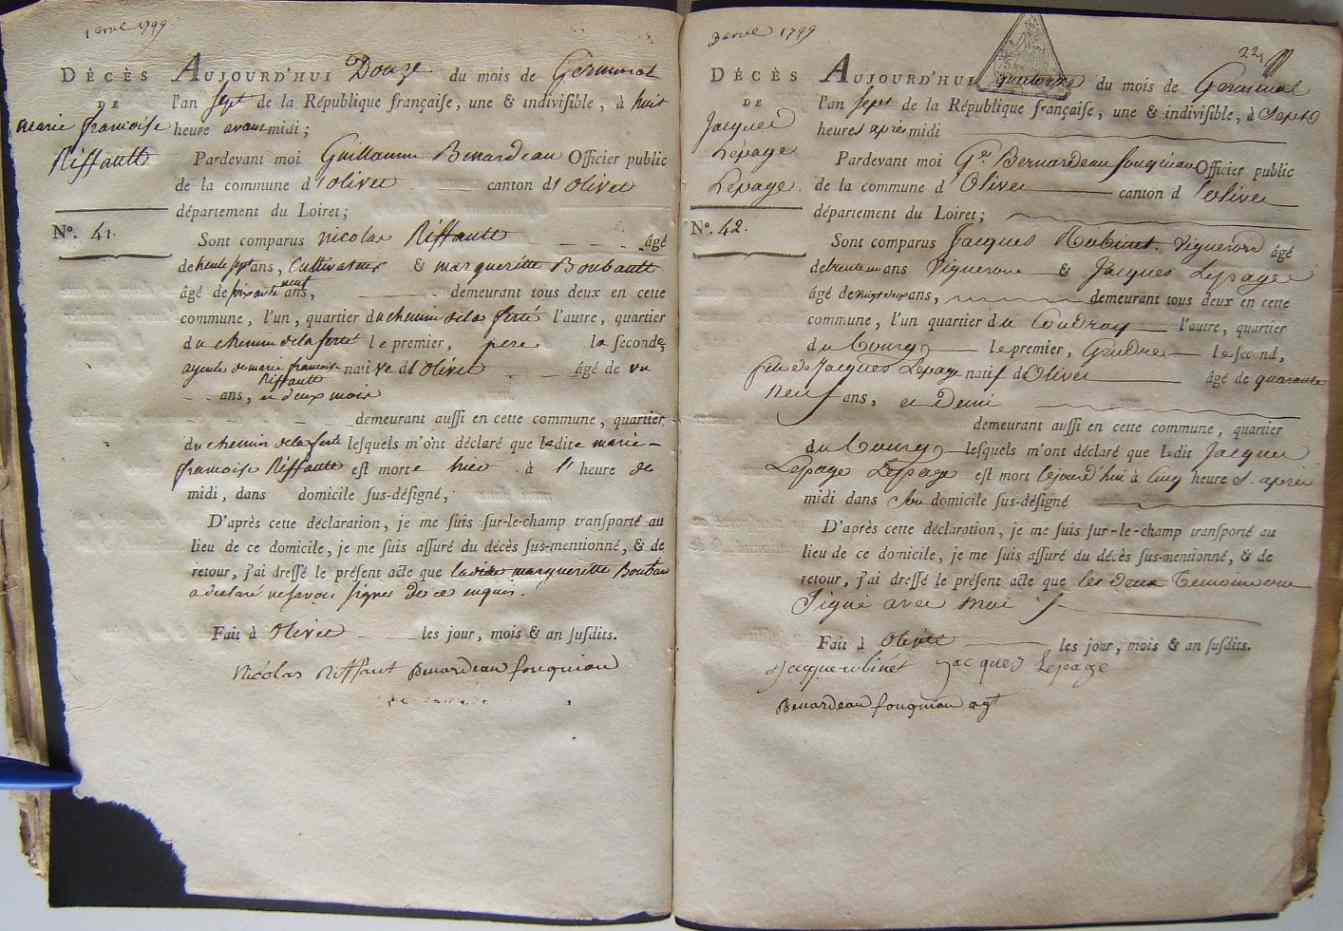 1 avril 1799
DÉCÈS
DE
Marie françoise
Riffault
N°. 41.
AUJOURD'HUI Douze du mois de Germinal
l'an sept de la République françaiſe, une & indiviſible, à huit
heure avant midi;
Pardevant moi Guillaume Benardeau Officier public
de la commune d'olivet canton d'olivet
département du Loiret;
Sont comparus nicolas Riffault âgé
de trente sept ans, Cultivateur & margueritte Boubault
âgé de soixante neuf ans, demeurant tous deux en cette
commune, l'un, quartier du chemin de la ferté l'autre, quartier
du chemin de la ferté le premier, pere la seconde,
ayeule de marie francoise Riffault native d'olivet âgé de un
ans, et deux mois
demeurant auſſi en cette commune, quartier
du chemin de la ferté leſquels m'ont déclaré que ladite marie-
francoise Riffault est morte hier à l'heure de
midi, dans domicile ſus-déſigné,
D'après cette déclaration, je me ſuis ſur-le-champ tranſporté au
lieu de ce domicile, je me ſuis aſſuré du décès ſus-mentionné, & de
retour, j'ai dreſſé le préſent acte que ladite margueritte Boubau
a declaré ne savoir signer de ce enquis.
Fait à olivet les jour, mois & an ſuſdits.
Nicolas Riffaut Benardeau fouqueau
3 avril 1799
22
DÉCÈS
DE
Jacques
Lepage
Lepage.
N°. 42.
AUJOURD'HUI quatorze du mois de Germinal
l'an sept de la République françaiſe, une & indiviſible, à Sept
heures après midi
Pardevant moi Benardeau fouqueau Officier public
de la commune d'Olivet canton d'olivet
département du Loiret;
Sont comparus Jacques Rabinet Vigneron âgé
de trente ans Vigneron & Jacques Lepage
âgé de vingt deux ans, demeurant tous deux en cette
commune, l'un quartier du Coudray l'autre, quartier
du bourg le premier, Gendre le ſecond,
fils de Jacques Lepage natif d'Olivet âgé de quarante
neuf ans, et Demi
demeurant auſſi en cette commune, quartier
du bourg leſquels m'ont déclaré que ledit Jacques
Lepage Lepage est mort à Cinq heures après
midi dans son domicile ſus-déſigné
D'après cette déclaration, je me ſuis ſur-le-champ tranſporté au
lieu de ce domicile, je me ſuis aſſuré du décès ſus-mentionné, & de
retour, j'ai dreſſé le préſent acte que les deux temoins ont
Signé avec moi
Fait à olivet les jour, mois & an ſuſdits.
Jacque Lepage
Benardeau fouqueau agt